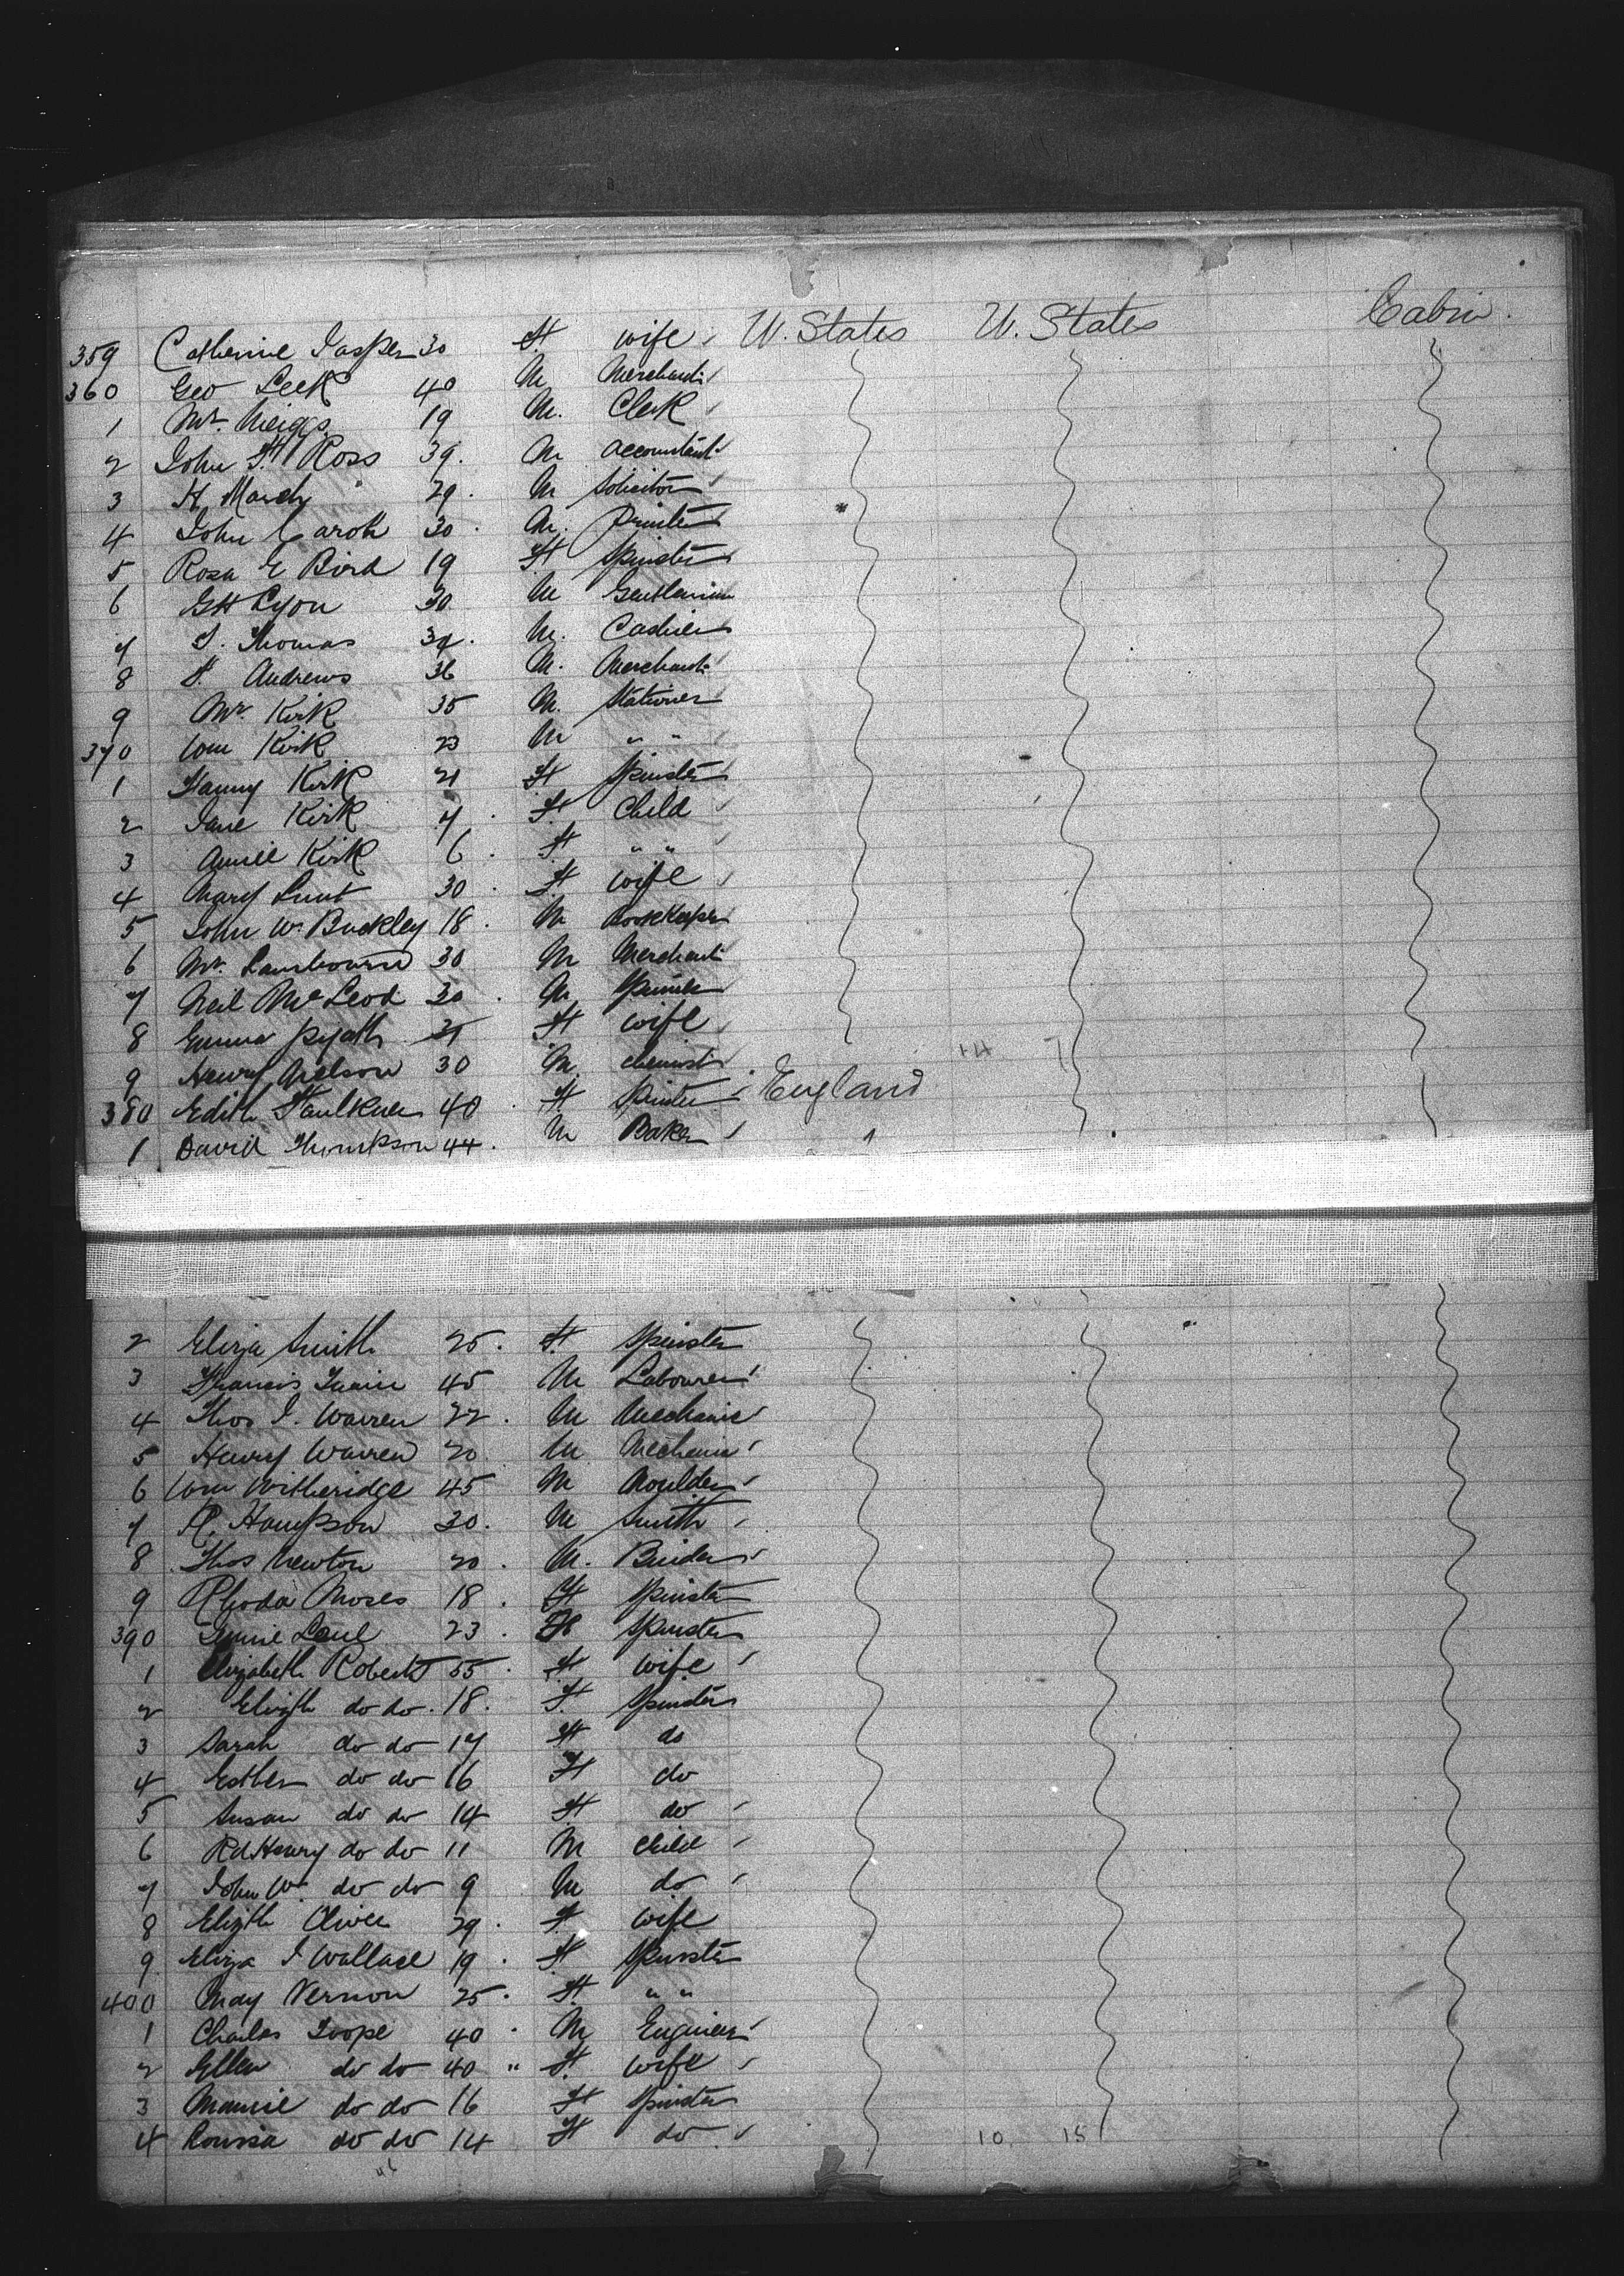 359 Catherine Jasper 30 F wife U. States U. States Cabin.
360 Geo Leek 40 M Merchant
1 Mr. Meiggs 19 M. Clerk
2 John F. Ross 39. M accountant
3 H. March 29. M Solicitor
4 John Carok 30. M. Printer
5 Rosa E Bird 19 F Spinster
6 G H Lyon 30 M Gentleman
7 J. Thomas 32. M. Cashier
8 F. Andrews 36 M. Merchant
9 Mr. Kirk 35 M. Stationer
370 Wm Kirk 23 M " "
1 Fanny Kirk 21 F Spinster
2 Jane Kirk 7. F. Child
3 Annie Kirk 6. F " "
4 Mary Lunt 30. F wife
5 John W. Buckley 18. M Bookkeeper
6 Mr. Lambourne 30 M Merchant
7 Neil McLeod 30. M
8 Emma Pyatt F wife
9 Henry Nelson 30 M. chemist
380 Edith Faulkner 40. F Spinster England
1 David Thompson 44. M Baker
2 Eliza Smith 25. F Spinster
3 Francis 45 M Labourer
4 Thos J. Warren 22. M Mechanic
5 Henry Warren 20 M Mechanic
6 Wm Witheridge 45 M Moulder
7 R. Hampson 30. M Smith
8 Thos Newton 20. M.
9 Rhoda Moses 18. F Spinster
390 23. F Spinster
1 Elizabeth Roberts 55. F wife
2 Elizth do do. 18. F. Spinster
3 Sarah do do 17 F do
4 Esther do do 16 F do
5 Susan do do 14 F do
6 Rd Henry do do 11 M child
7 John W. do do 9 M do
8 Elizth Oliver 29. F. wife
9 Eliza J Wallace 19. F Spinster
400 May Vernon 25. F. " "
1 Charles Toope 40. M Engineer
2 Ellen do do 40 " F. wife
3 Mamie do do 16 F Spinster
4 Louisa do do 14 F do 10 15